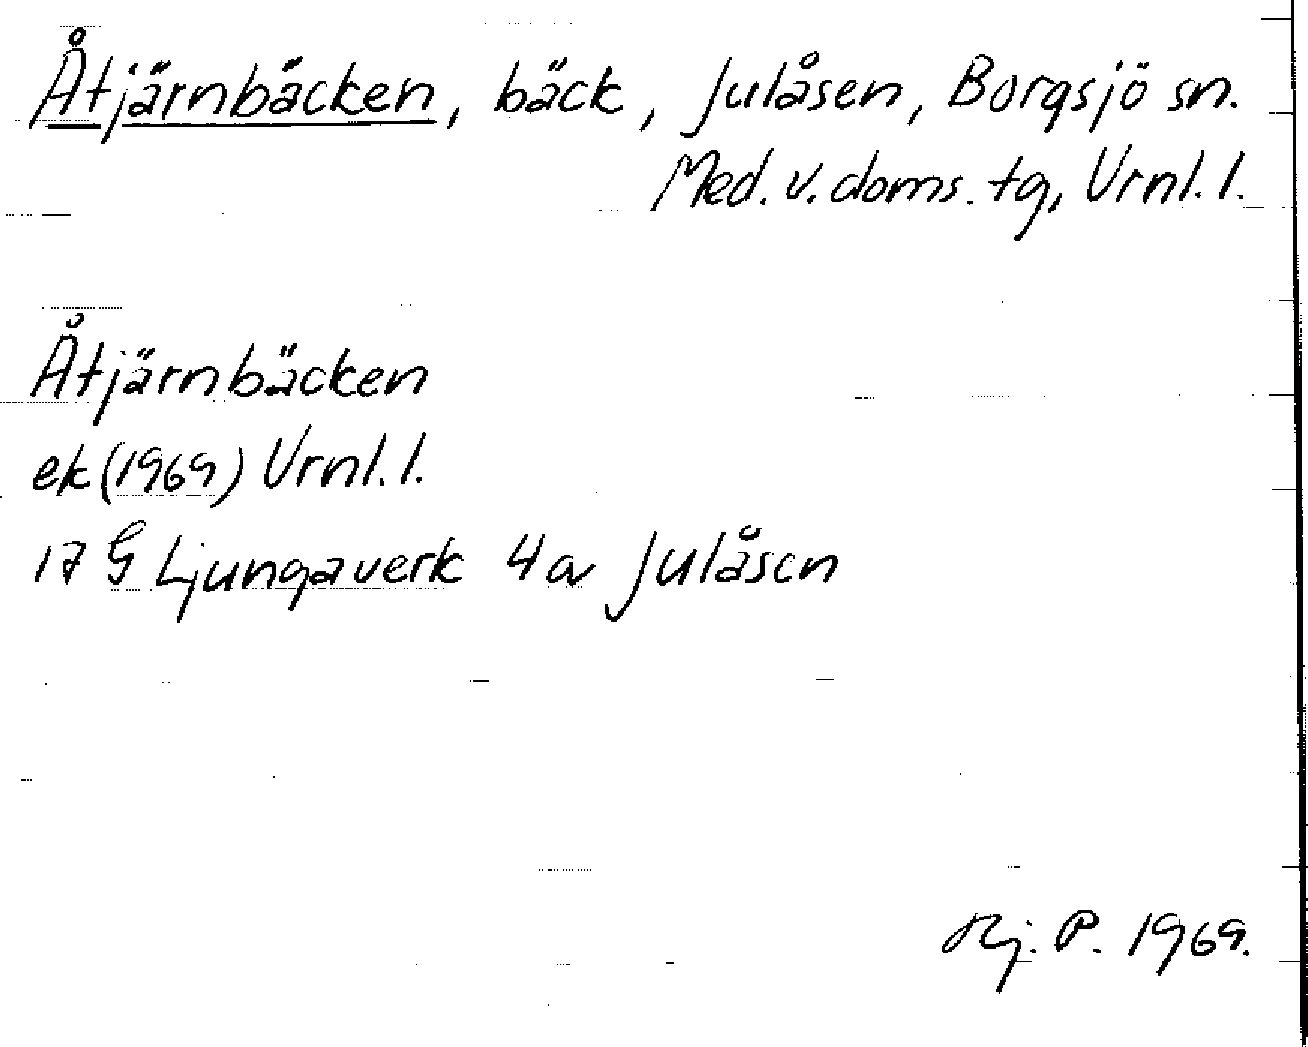 Åtjärnbäcken, bäck, Julåsen, Borgsjö sn.
Med. v. doms. tg, Vrnl. l.
Åtjärnbäcken
ek (1969) Vrnl. l.
17 G Ljungaverk 4a Julåsen
Hj. P. 1969.